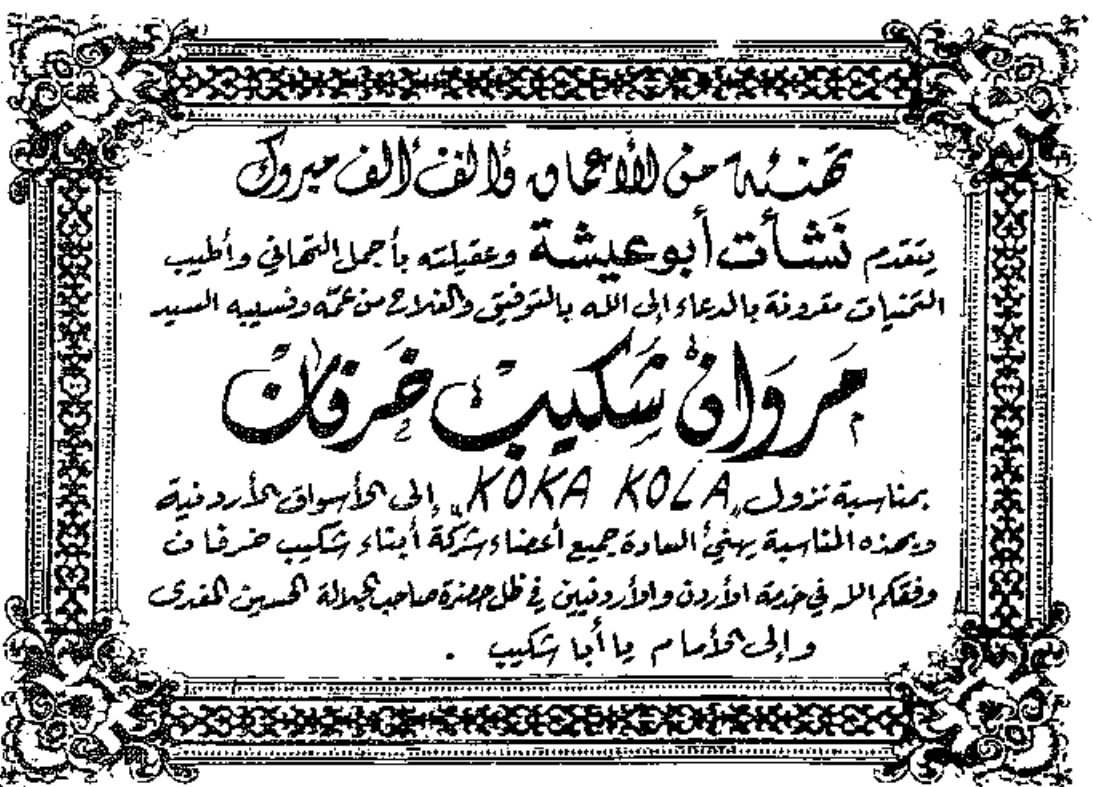 تهنئة من الأعماق وألف ألف مبروك
يتقدم نَشأت أبوعيشة وعقيلته بأجمل التهاني وأطيب
التمنيات مقرونة بالدعاء إلى الله بالتوفيق والفلاح من عمّه ونسيبه السيد
مَروَان شَكيب خَرفان
بمناسبة نزول „KOKA KOLA„ إلى الأسواق الأردنية
وبهذه المناسبة يهنئ السادة جميع أعضاء شركة أبناء شكيب خرفان
وفقكم الله في خدمة الأردن والأردنيين في ظل حضرة صاحب الجلالة الحسين المفدى
وإلى الأمام يا أبا شكيب .